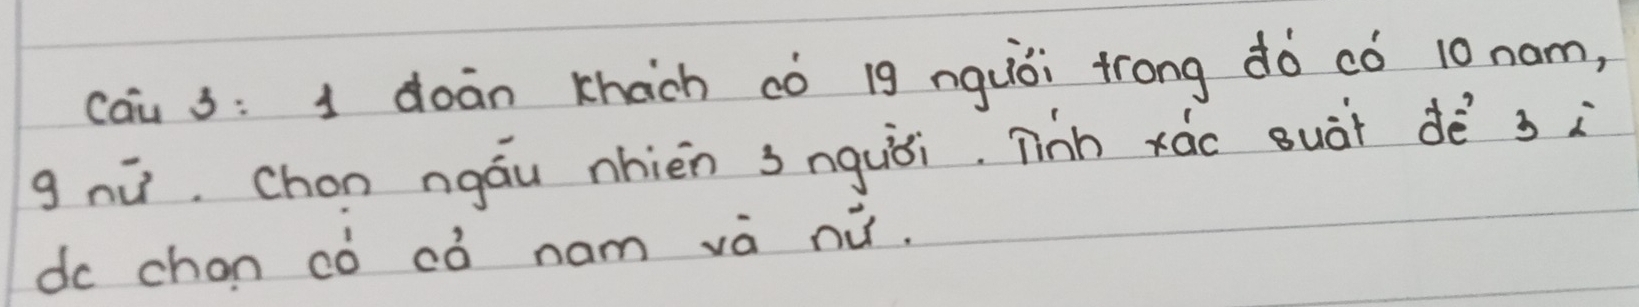 Câu 3: 1 đoàn khách có 19 người trong đó có 10 nam,
9 nữ. Chọn ngẫu nhiên 3 người. Tính xác suất để 3 ng
đc chọn có cả nam và nữ.